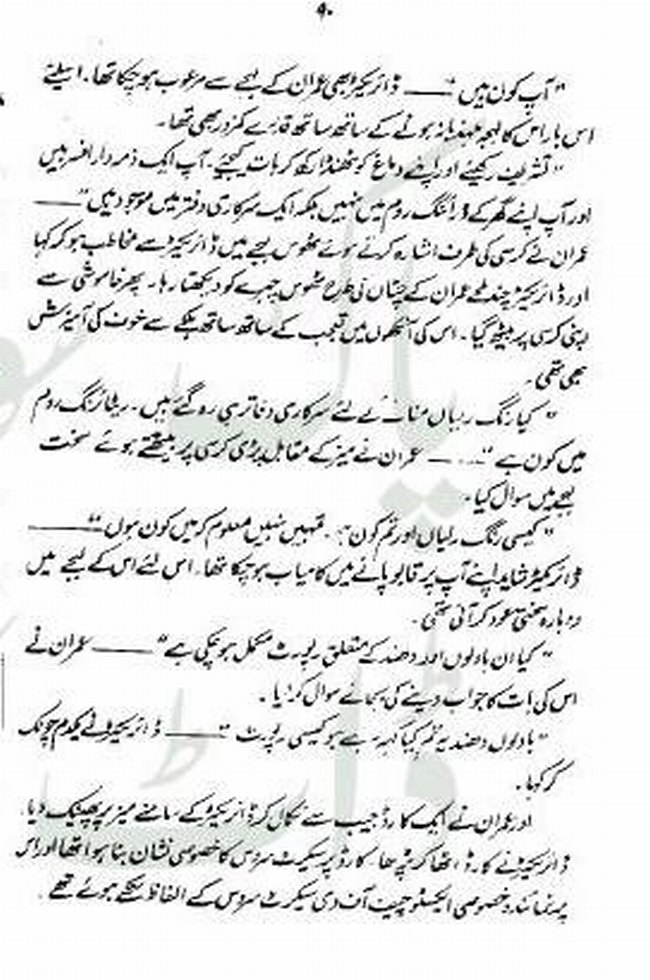 ۹۰
"آپ کون ہیں" ــــــ ڈائریکٹر بھی عمران کے لہجے سے مرعوب ہو چکا تھا۔ اسلئے
اس بار اس کا لہجہ مہذبانہ ہونے کے ساتھ ساتھ قدرے کمزور بھی تھا۔
"تشریف رکھیئے اور اپنے دماغ کو ٹھنڈا رکھ کر بات کیجئے۔ آپ ایک ذمہ دار افسر ہیں
اور آپ اپنے گھر کے ڈرائنگ روم میں نہیں بلکہ ایک سرکاری دفتر میں موجود ہیں" ــــــ
عمران نے کرسی کی طرف اشارہ کرتے ہوئے ٹھوس لہجے میں ڈائریکٹر سے مخاطب ہو کر کہا
اور ڈائریکٹر چند لمحے عمران کے چٹان کی طرح ٹھوس چہرے کو دیکھتا رہا۔ پھر خاموشی سے
اپنی کرسی پر بیٹھ گیا۔ اس کی آنکھوں میں تعجب کے ساتھ ساتھ ہلکے سے خوف کی آمیزش
بھی تھی۔
"کیا رنگ رلیاں منانے کے لئے سرکاری دفاتر ہی رہ گئے ہیں۔ ریٹائرنگ روم
میں کون ہے" ــــــ عمران نے میز کے مقابل پڑی کرسی پر بیٹھتے ہوئے سخت
لہجے میں سوال کیا۔
"کیسی رنگ رلیاں اور تم کون ہو۔ تمہیں نہیں معلوم کہ میں کون ہوں" ــــــ
ڈائریکٹر شاید اپنے آپ پر قابو پانے میں کامیاب ہو چکا تھا۔ اس لئے اس کے لہجے میں
دوبارہ سختی عود کر آئی تھی۔
"کیا ان بادلوں اور دھند کے متعلق رپورٹ مکمل ہو چکی ہے" ــــــ عمران نے
اس کی بات کا جواب دینے کی بجائے سوال کر دیا۔
"بادلوں دھند یہ تم کیا کہہ رہے ہو کیسی رپورٹ" ــــــ ڈائریکٹر نے یکدم چونک
کر کہا۔
اور عمران نے ایک کارڈ جیب سے نکال کر ڈائریکٹر کے سامنے میز پر پھینک دیا۔
ڈائریکٹر نے کارڈ اٹھا کر پڑھا۔ کارڈ پر سیکرٹ سروس کا خصوصی نشان بنا ہوا تھا اور اس
پر نمائندہ خصوصی ایکسٹو چیف آف دی سیکرٹ سروس کے الفاظ لکھے ہوئے تھے۔